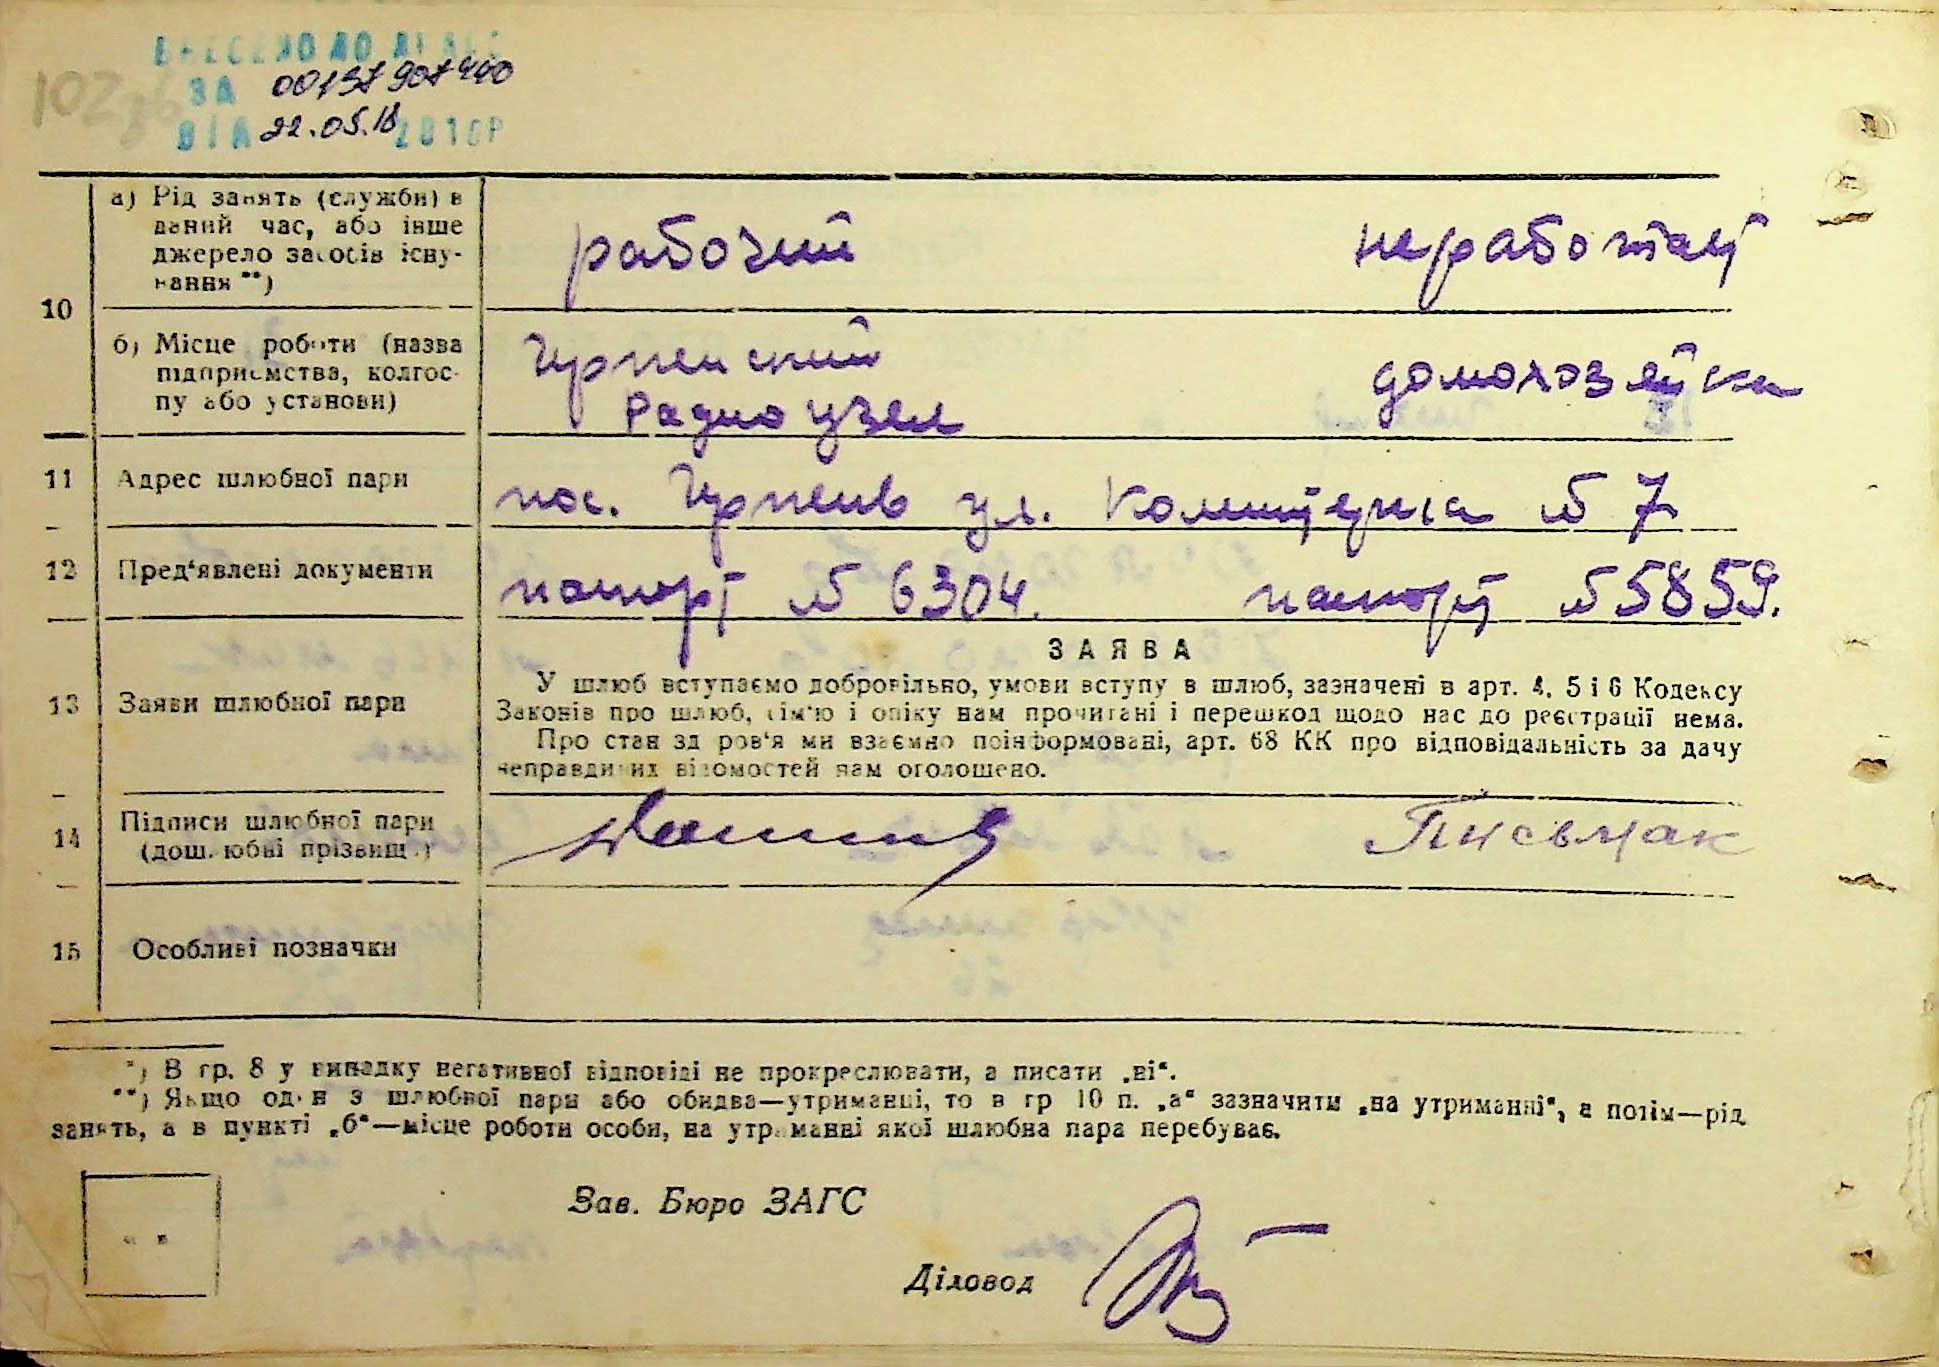 ВНЕСЕНО ДО ДРАЦС
ЗА 00137907440
ВІД 22.05.18 201 Р
102
10
а) Рід занять (служби) в
даний час, або інше
джерело засобів існу-
вання **)
рабочий неработает
б) Місце роботи (назва
підприємства, колгос-
пу або установи)
Ирпенский
Радиоузел
домохозяйка
11 Адрес шлюбної пари
пос. Ирпень ул. Коминтерна № 7
12 Пред‘явлені документи
паспорт № 6304. паспорт № 5859.
13 Заяви шлюбної пари
ЗАЯВА
У шлюб вступаємо добровільно, умови вступу в шлюб, зазначені в арт. 4, 5 і 6 Кодексу
Законів про шлюб, сім‘ю і опіку нам прочитані і перешкод щодо нас до реєстрації нема.
Про стан здоров‘я ми взаємно поінформовані, арт. 68 КК про відповідальність за дачу
неправдивих відомостей нам оголошено.
14 Підписи шлюбної пари
(дошлюбні прізвища)
Письмак
15 Особливі позначки
*) В гр. 8 у випадку негативної відповіді не прокреслювати, а писати „ні“.
**) Якщо один з шлюбної пари або обидва—утриманці, то в гр 10 п. „а“ зазначити „на утриманні“, а потім—рід
занять, а в пункті „б“—місце роботи особи, на утриманні якої шлюбна пара перебуває.
Зав. Бюро ЗАГС
Діловод